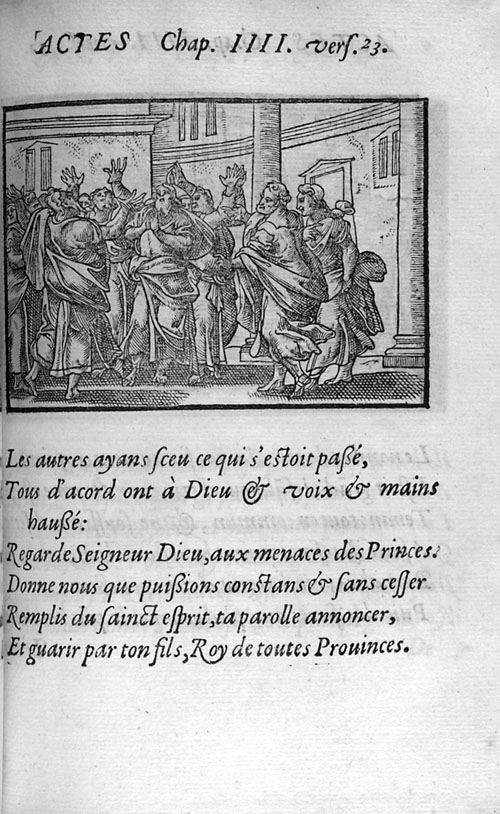 ACTES Chap. IIII. vers. 23.
Les autres ayans sceu ce qui s'estoit passé,
Tous d'acord ont à Dieu & voix & mains
haussé:
Regarde Seigneur Dieu, aux menaces des Princes.
Donne nous que puissions constans & sans cesser
Remplis du sainct esprit, ta parolle annoncer,
Et guarir par ton fils, Roy de toutes Prouinces.